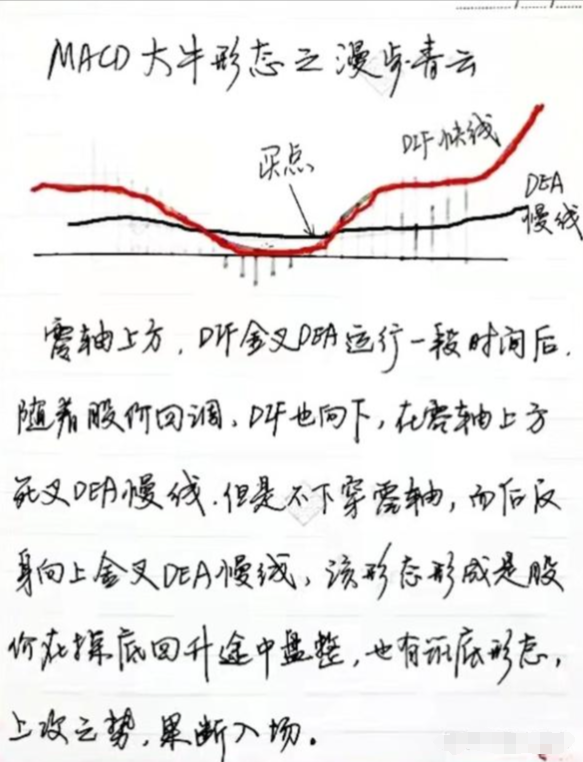 MACD大牛形态之漫步青云
买点
DIF快线
DEA
慢线
零轴上方，DIF金叉DEA运行一段时间后，
随着股价回调，DIF也向下，在零轴上方
死叉DEA慢线.但是不下穿零轴，而后反
身向上金叉DEA慢线，该形态形成是股
价在探底回升途中盘整，也有筑底形态，
上攻之势，果断入场。